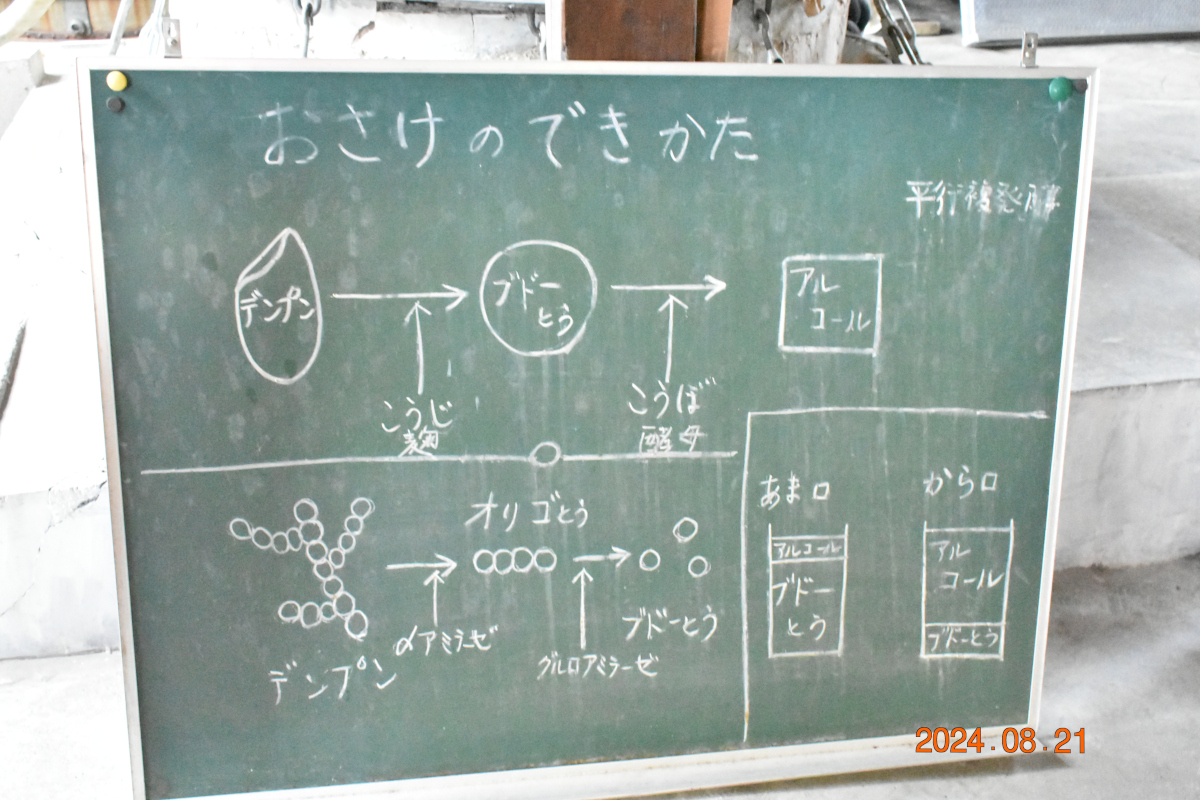 おさけのできかた
平行複発酵
デンプン
ブドー
とう
アル
コール
こうじ
麹
こうぼ
酵母
オリゴとう
αアミラーゼ
グルロアミラーゼ
ブドーとう
デンプン
あま口
アルコール
ブドー
とう
から口
アル
コール
ブドーとう
2024.08.21